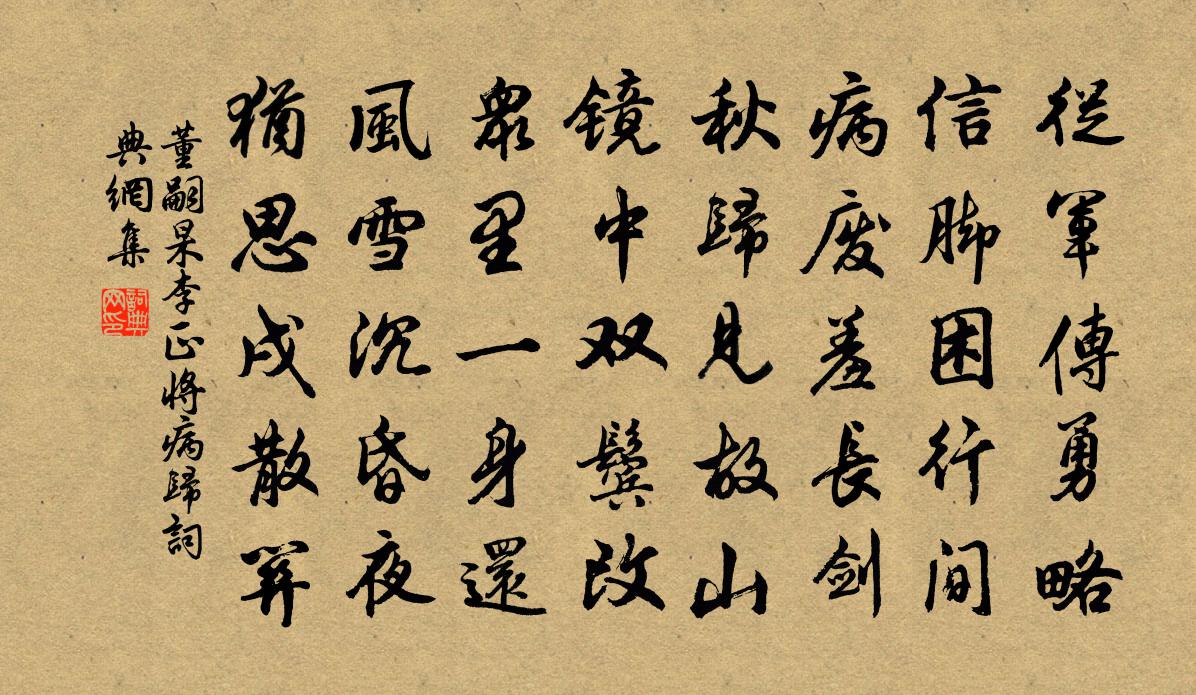 從軍傳勇略
信脚困行間
病废羞長劍
秋歸見故山
镜中双鬓改
衆里一身還
風雪沉昏夜
猶思戍散關
董嗣杲李正將病歸詞
典網集
詞典
网印